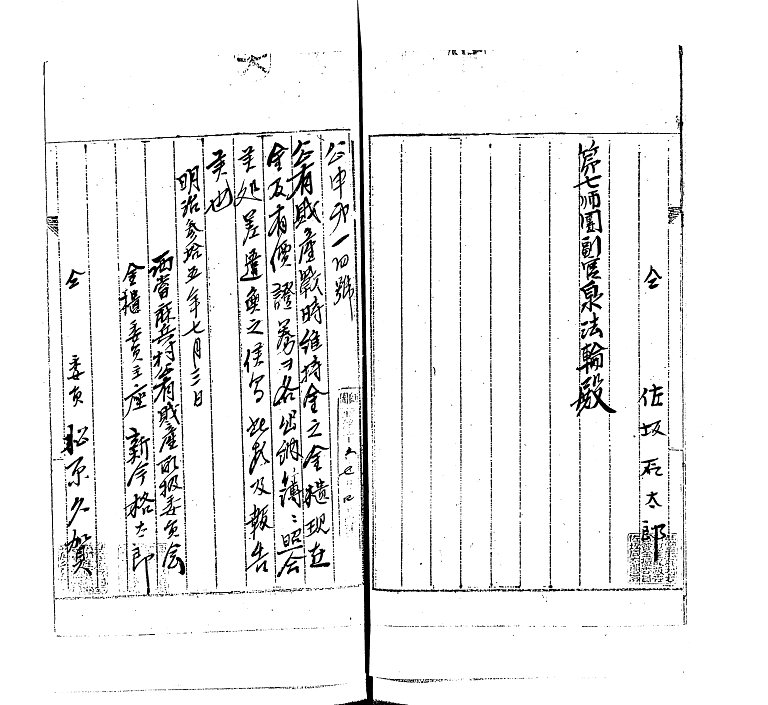 仝 佐坂石太郎
第七師團副官泉法輪殿
公申第一四號
公有財産戰時維持金之金櫃現在
金及有價證券ヲ各出納簿ニ照合
候処差違無之候間此段及報告
候也
明治参拾五年七月三日
有財産取扱委員会
金櫃委員主座 新今格太郎
仝 委員 松原久賀